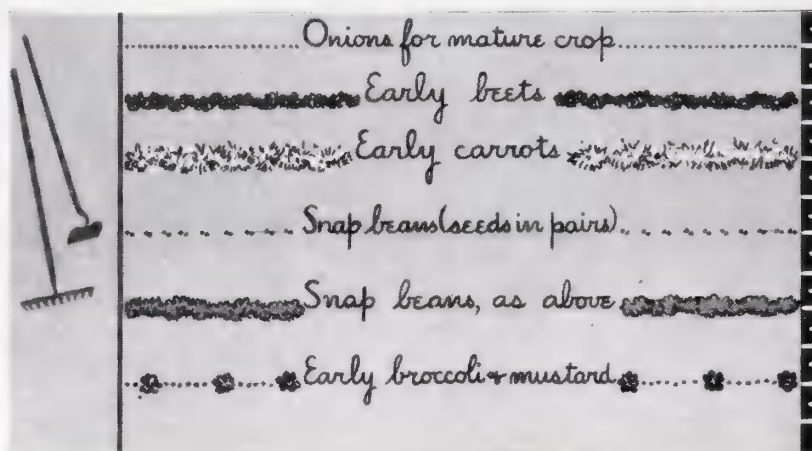 Onions for mature crop
Early beets
Early carrots
Snap beans (seeds in pairs)
Snap beans, as above
Early broccoli & mustard